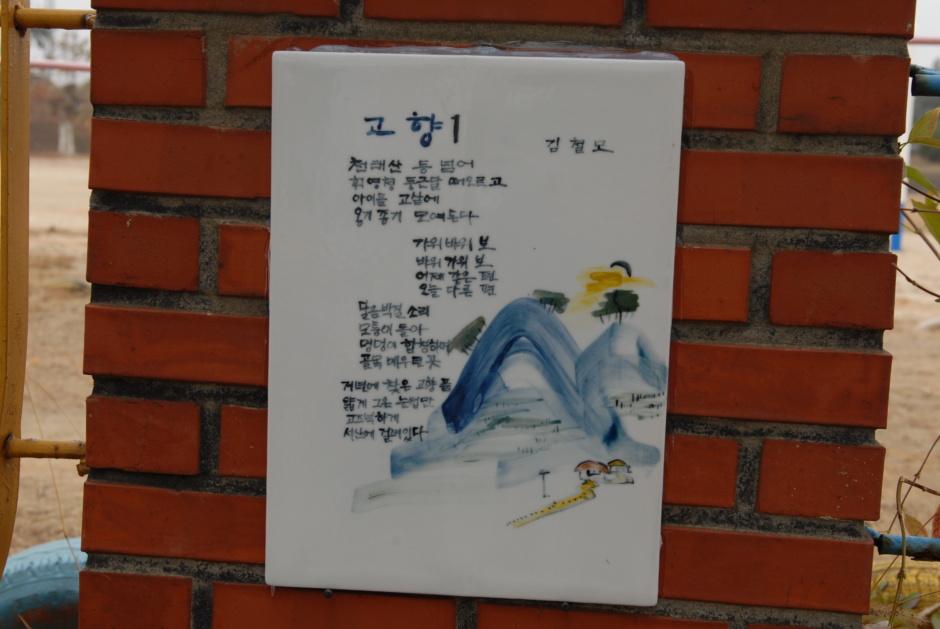 고향1
김철모
천태산 등 넘어
휘영청 둥근달 떠오르고
아이들 고샅에
옹기 종기 모여든다
가위 바위 보
바위 가위 보
어제 같은 편
오늘 다른 편
달음박질 소리
모퉁이 돌아
멍멍이 합창하며
골목 메우던 곳
저녁에 찾은 고향 들
엷게 그은 눈썹만
고즈넉하게
서산에 걸려있다